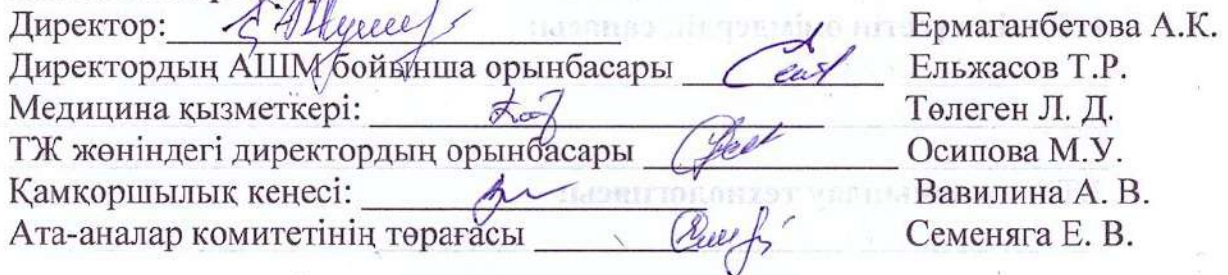 Директор: Ермаганбетова А.К.
Директордың АШМ бойынша орынбасары Ельжасов Т.Р.
Медицина қызметкері: Төлеген Л. Д.
ТЖ жөніндегі директордың орынбасары Осипова М.У.
Қамқоршылық кеңесі: Вавилина А. В.
Ата-аналар комитетінің төрағасы Семеняга Е. В.